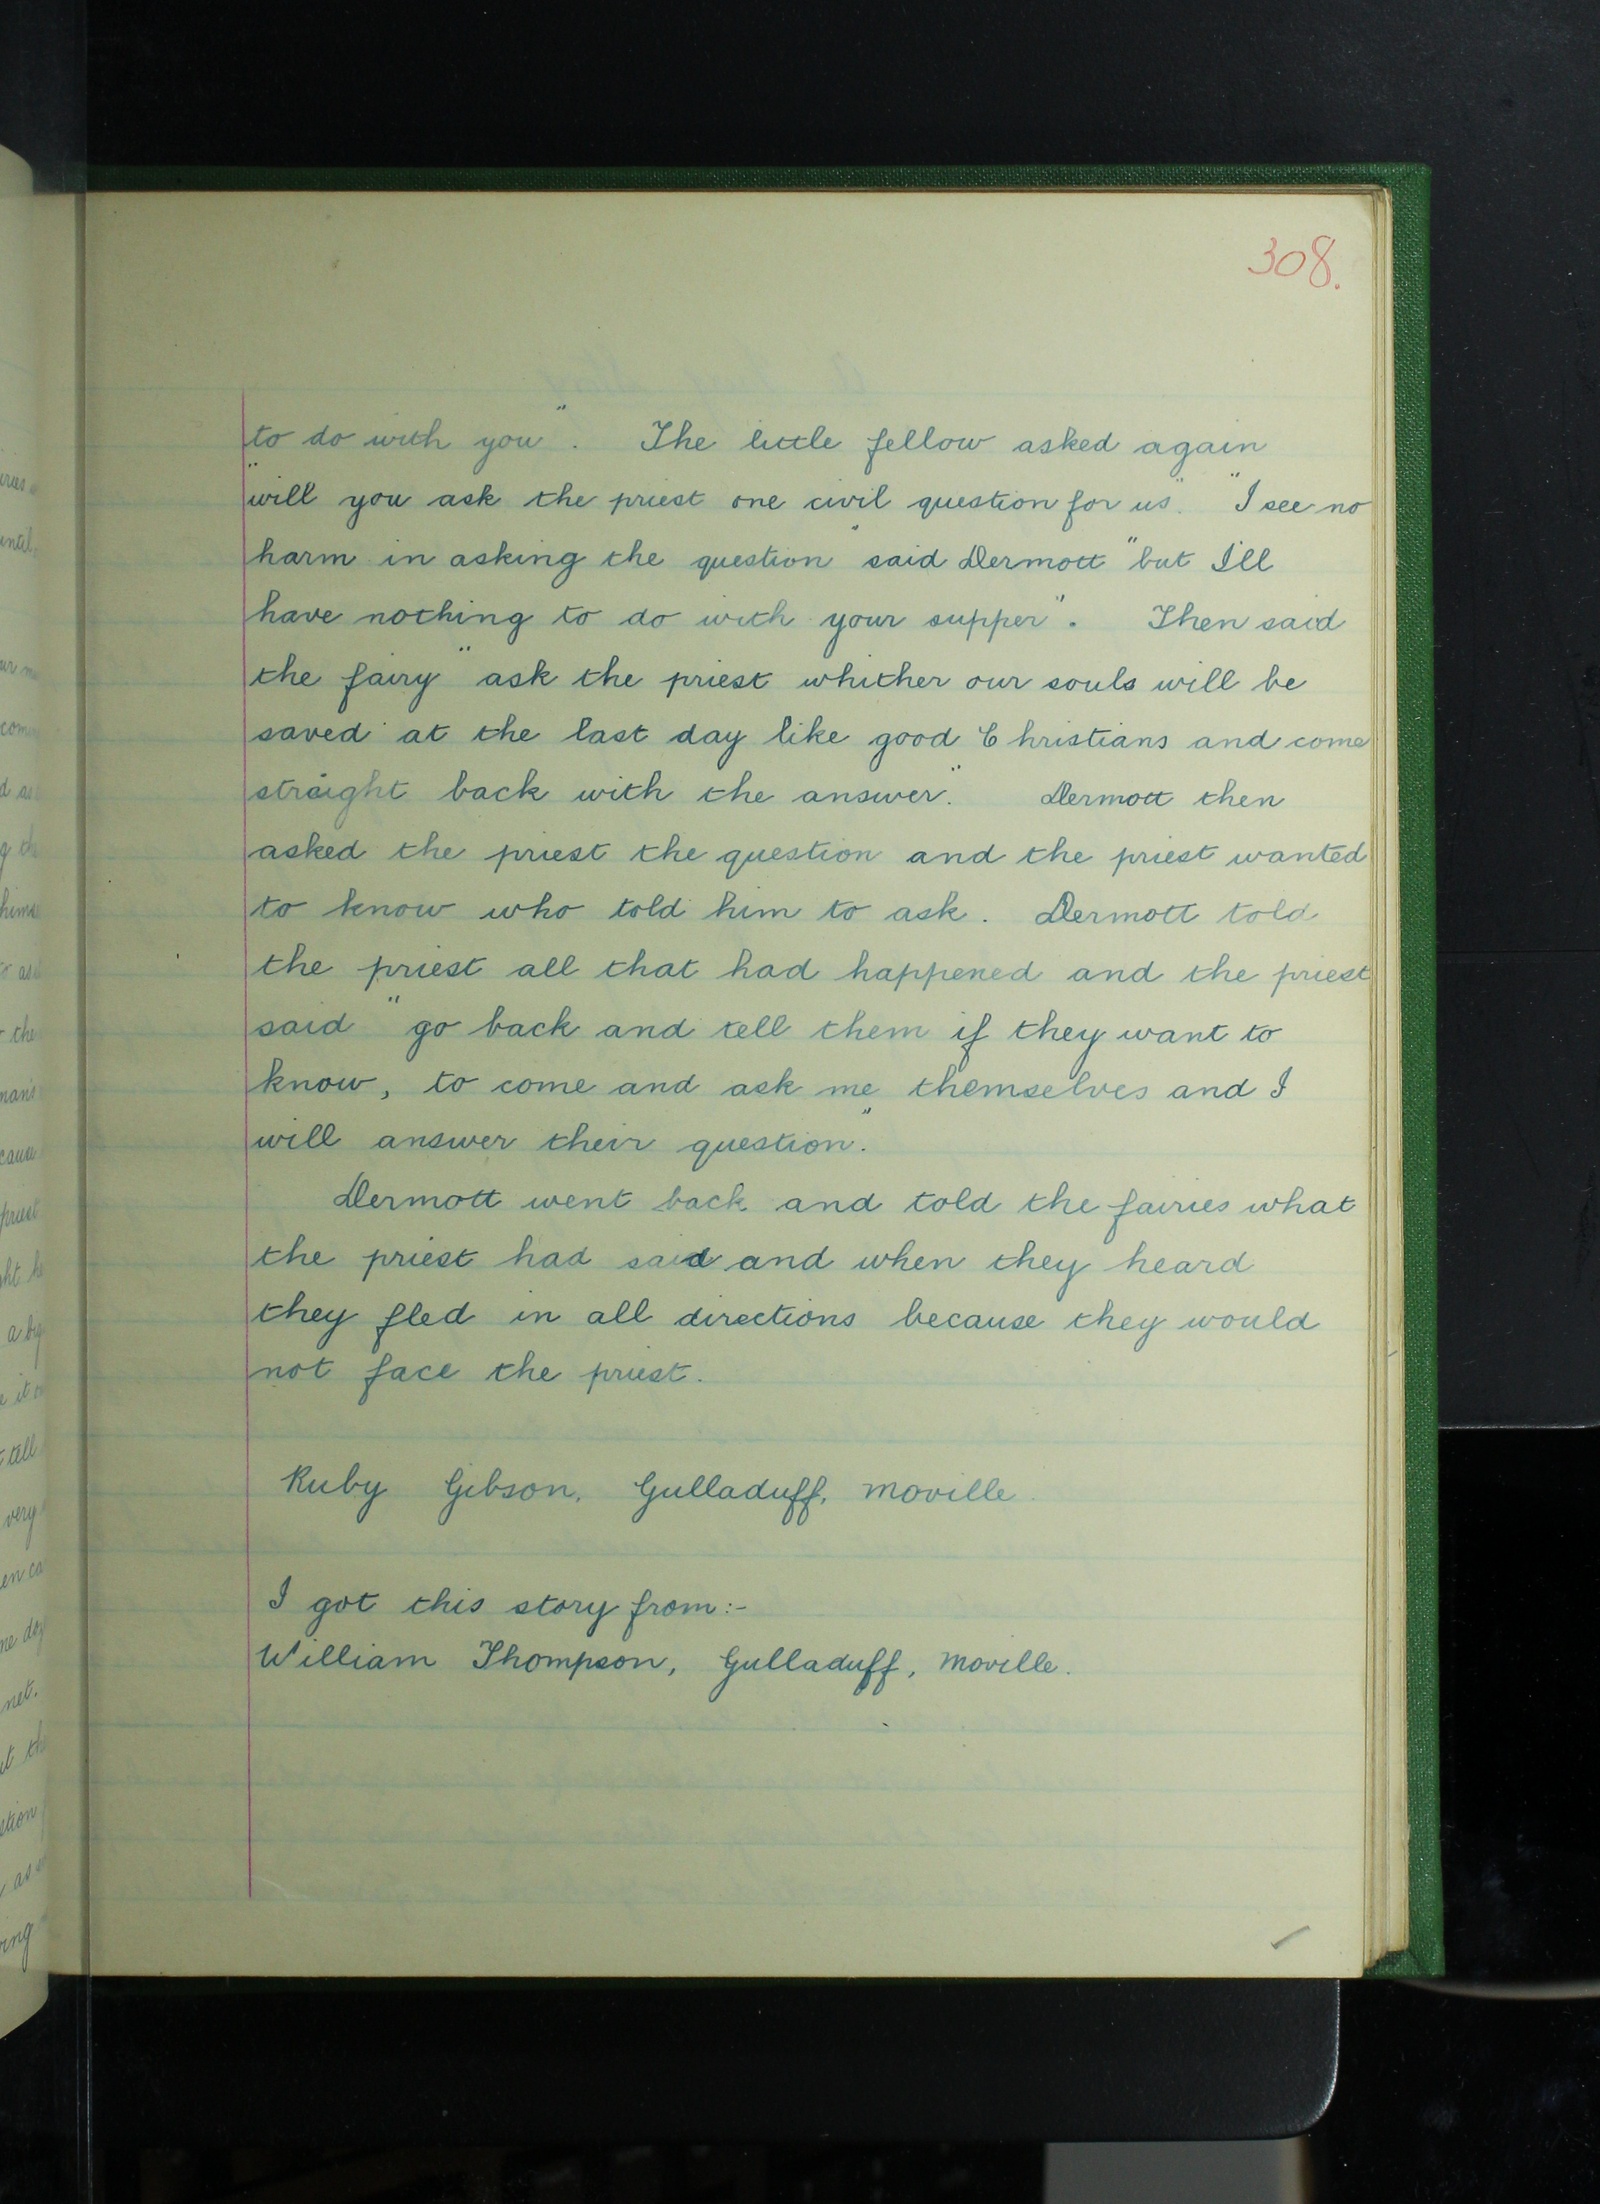 308.
to do with you". The little fellow asked again
"will you ask the priest one civil question for us". "I see no
harm in asking the question" said Dermott "but I'll
have nothing to do with your supper". Then said
the fairy "ask the priest whither our souls will be
saved at the last day like good Christians and come
straight back with the answer." Dermott then
asked the priest the question and the priest wanted
to know who told him to ask. Dermott told
the priest all that had happened and the priest
said "go back and tell them if they want to
know, to come and ask me themselves and I
will answer their question."
Dermott went back and told the fairies what
the priest had said and when they heard
they fled in all directions because they would
not face the priest.
Ruby Gibson, Gulladuff, Moville.
I got this story from:-
William Thompson, Gulladuff, Moville.